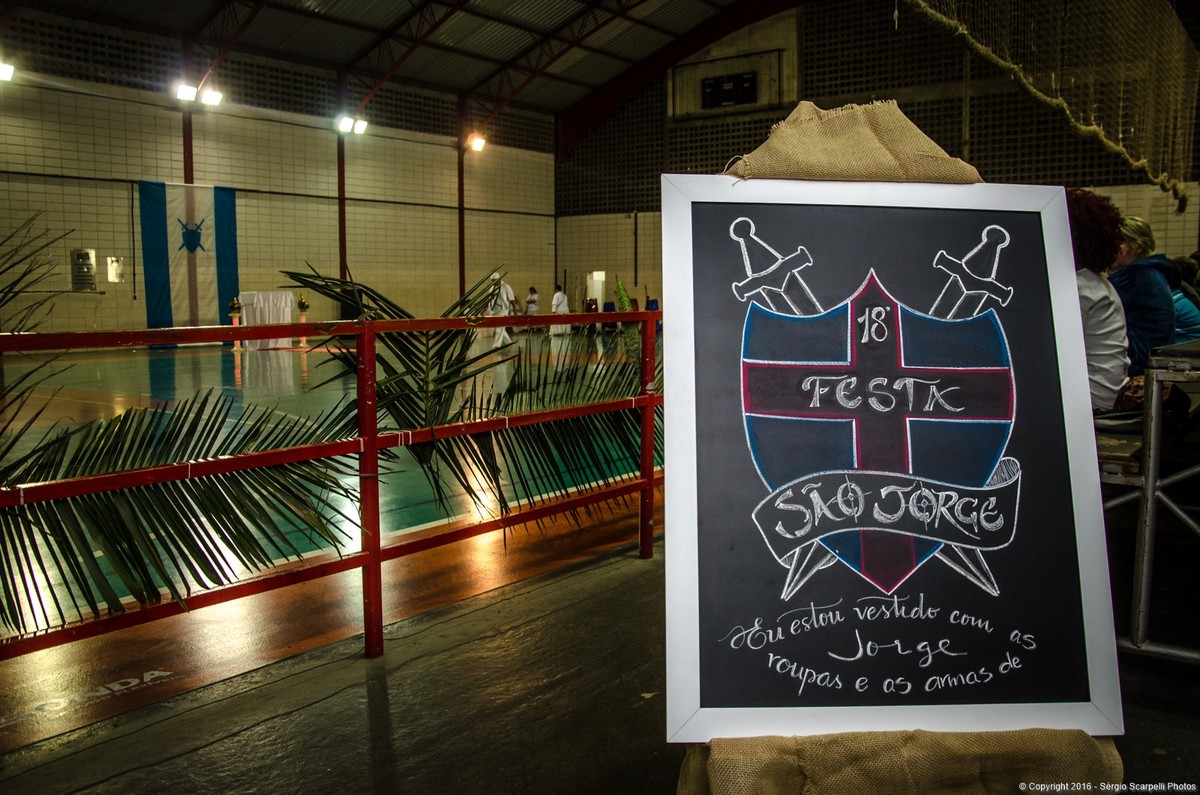 18ª
FESTA
SÃO JORGE
Eu estou vestido com as
roupas e as armas de
Jorge
ONDA
© Copyright 2016 - Sérgio Scarpelli Photos